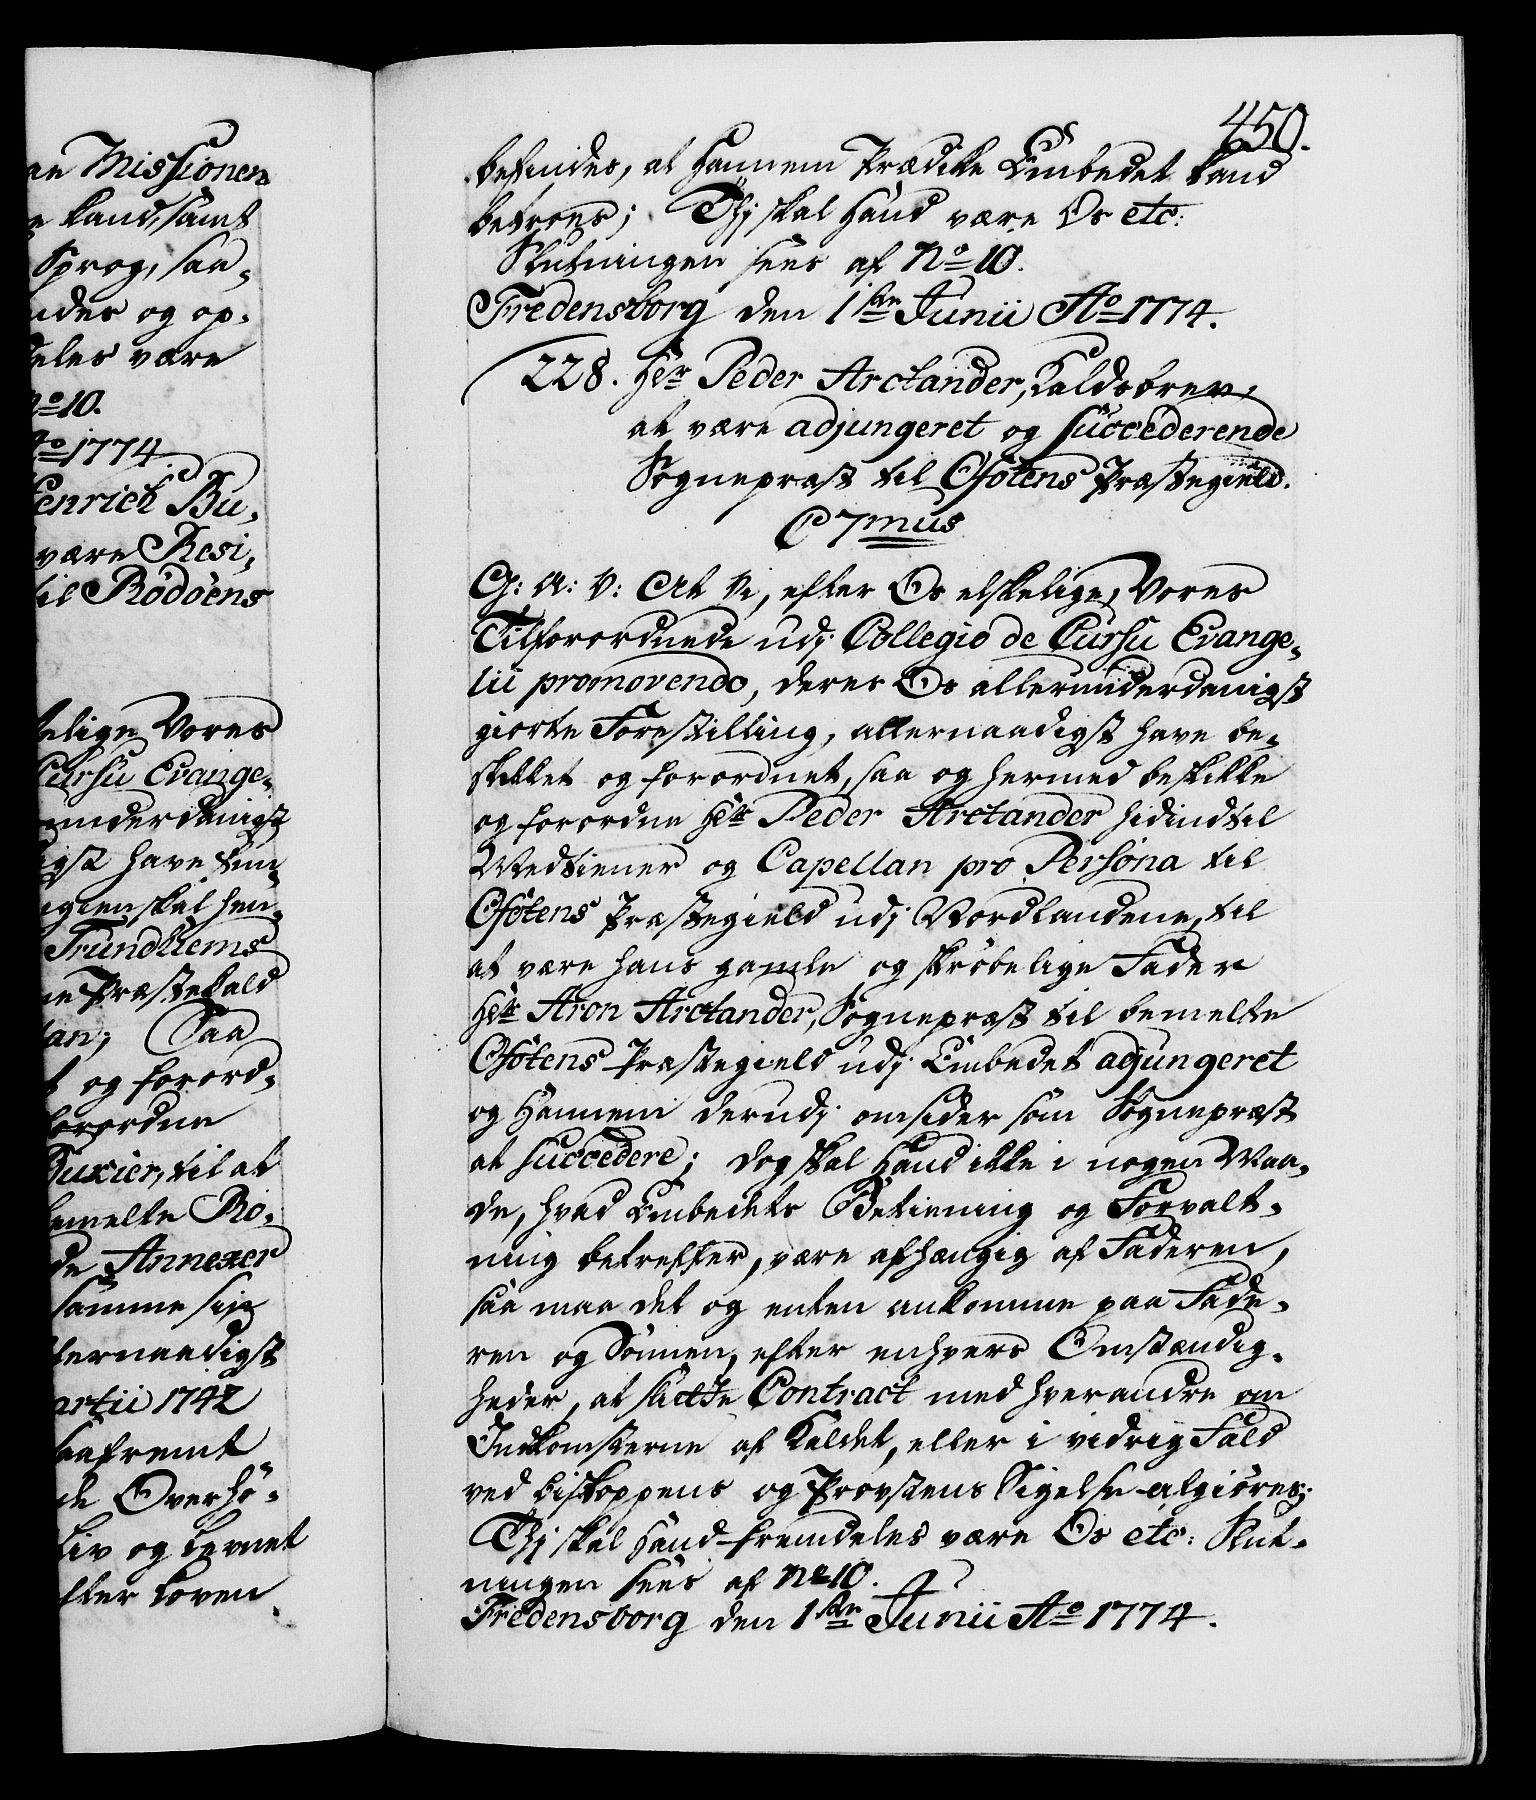 an Missionen
e kand, samt
Sprog, saa-
ndes og op-
deles være
No 10.
Ao 1774
Henrich Bu-
være Resi-
til Rödöens
kelige Vores
Cursu Evange-
underdanigst
igst have
skal hen-
Trundhiems
ne Præstekald
lan; Saa
t og forord-
forordne
Buxier, til at
bemelte Rö-
de Annexer
samme sig
lernaadigst
artii 1742
saafremt
de Overhö-
Liv og Levnet
fter Loven
450.
befindes, at Hannem Prædike Embedet kand
betroes; Thj skal Hand være Os etc:
Slutningen sees af No 10.
Fredensborg den 1ste Junii Ao 1774.
228. Hr Peder Arctander, Kaldsbrev,
at være adjungeret og succederende
Sognepræst til Ofotens Præstegield.
C7mus
G: A: V: At Vi, efter Os elskelige, Vores
Tilforordnede udj Collegio de Cursu Evange-
lii promovendo, deres Os allerunderdanigst
giorte Forestilling, allernaadigst have be-
skikket og forordnet, saa og hermed beskikke
og forordne Hr Peder Arctander hidindtil
Medtiener og Capellan pro Persona til
Ofotens Præstegield udj Nordlandene, til
at være hans gamle og skröbelige Fader
Hr Aron Arctander, Sognepræst til bemelte
Ofotens Præstegield udj Embedet adjungeret
og Hannem derudj omsider som Sognepræst
at succedere; dog skal Hand ikke i nogen Maa-
de, hvad Embedets Betiening og Forvalt-
ning betreffer, være afhængig af Faderen,
saa maa det og enten ankomme paa Fade-
ren og Sönnen, efter enhvers Omstændig-
heder, at slutte Contract med hverandre om
Indkomsterne af Kaldet, eller i vidrig Fald
ved Biskoppens og Provstens Sigelse afgiöres;
Thj skal Hand fremdeles være Os etc: Slut-
ningen sees af No 10.
Fredensborg den 1ste Junii Ao 1774.